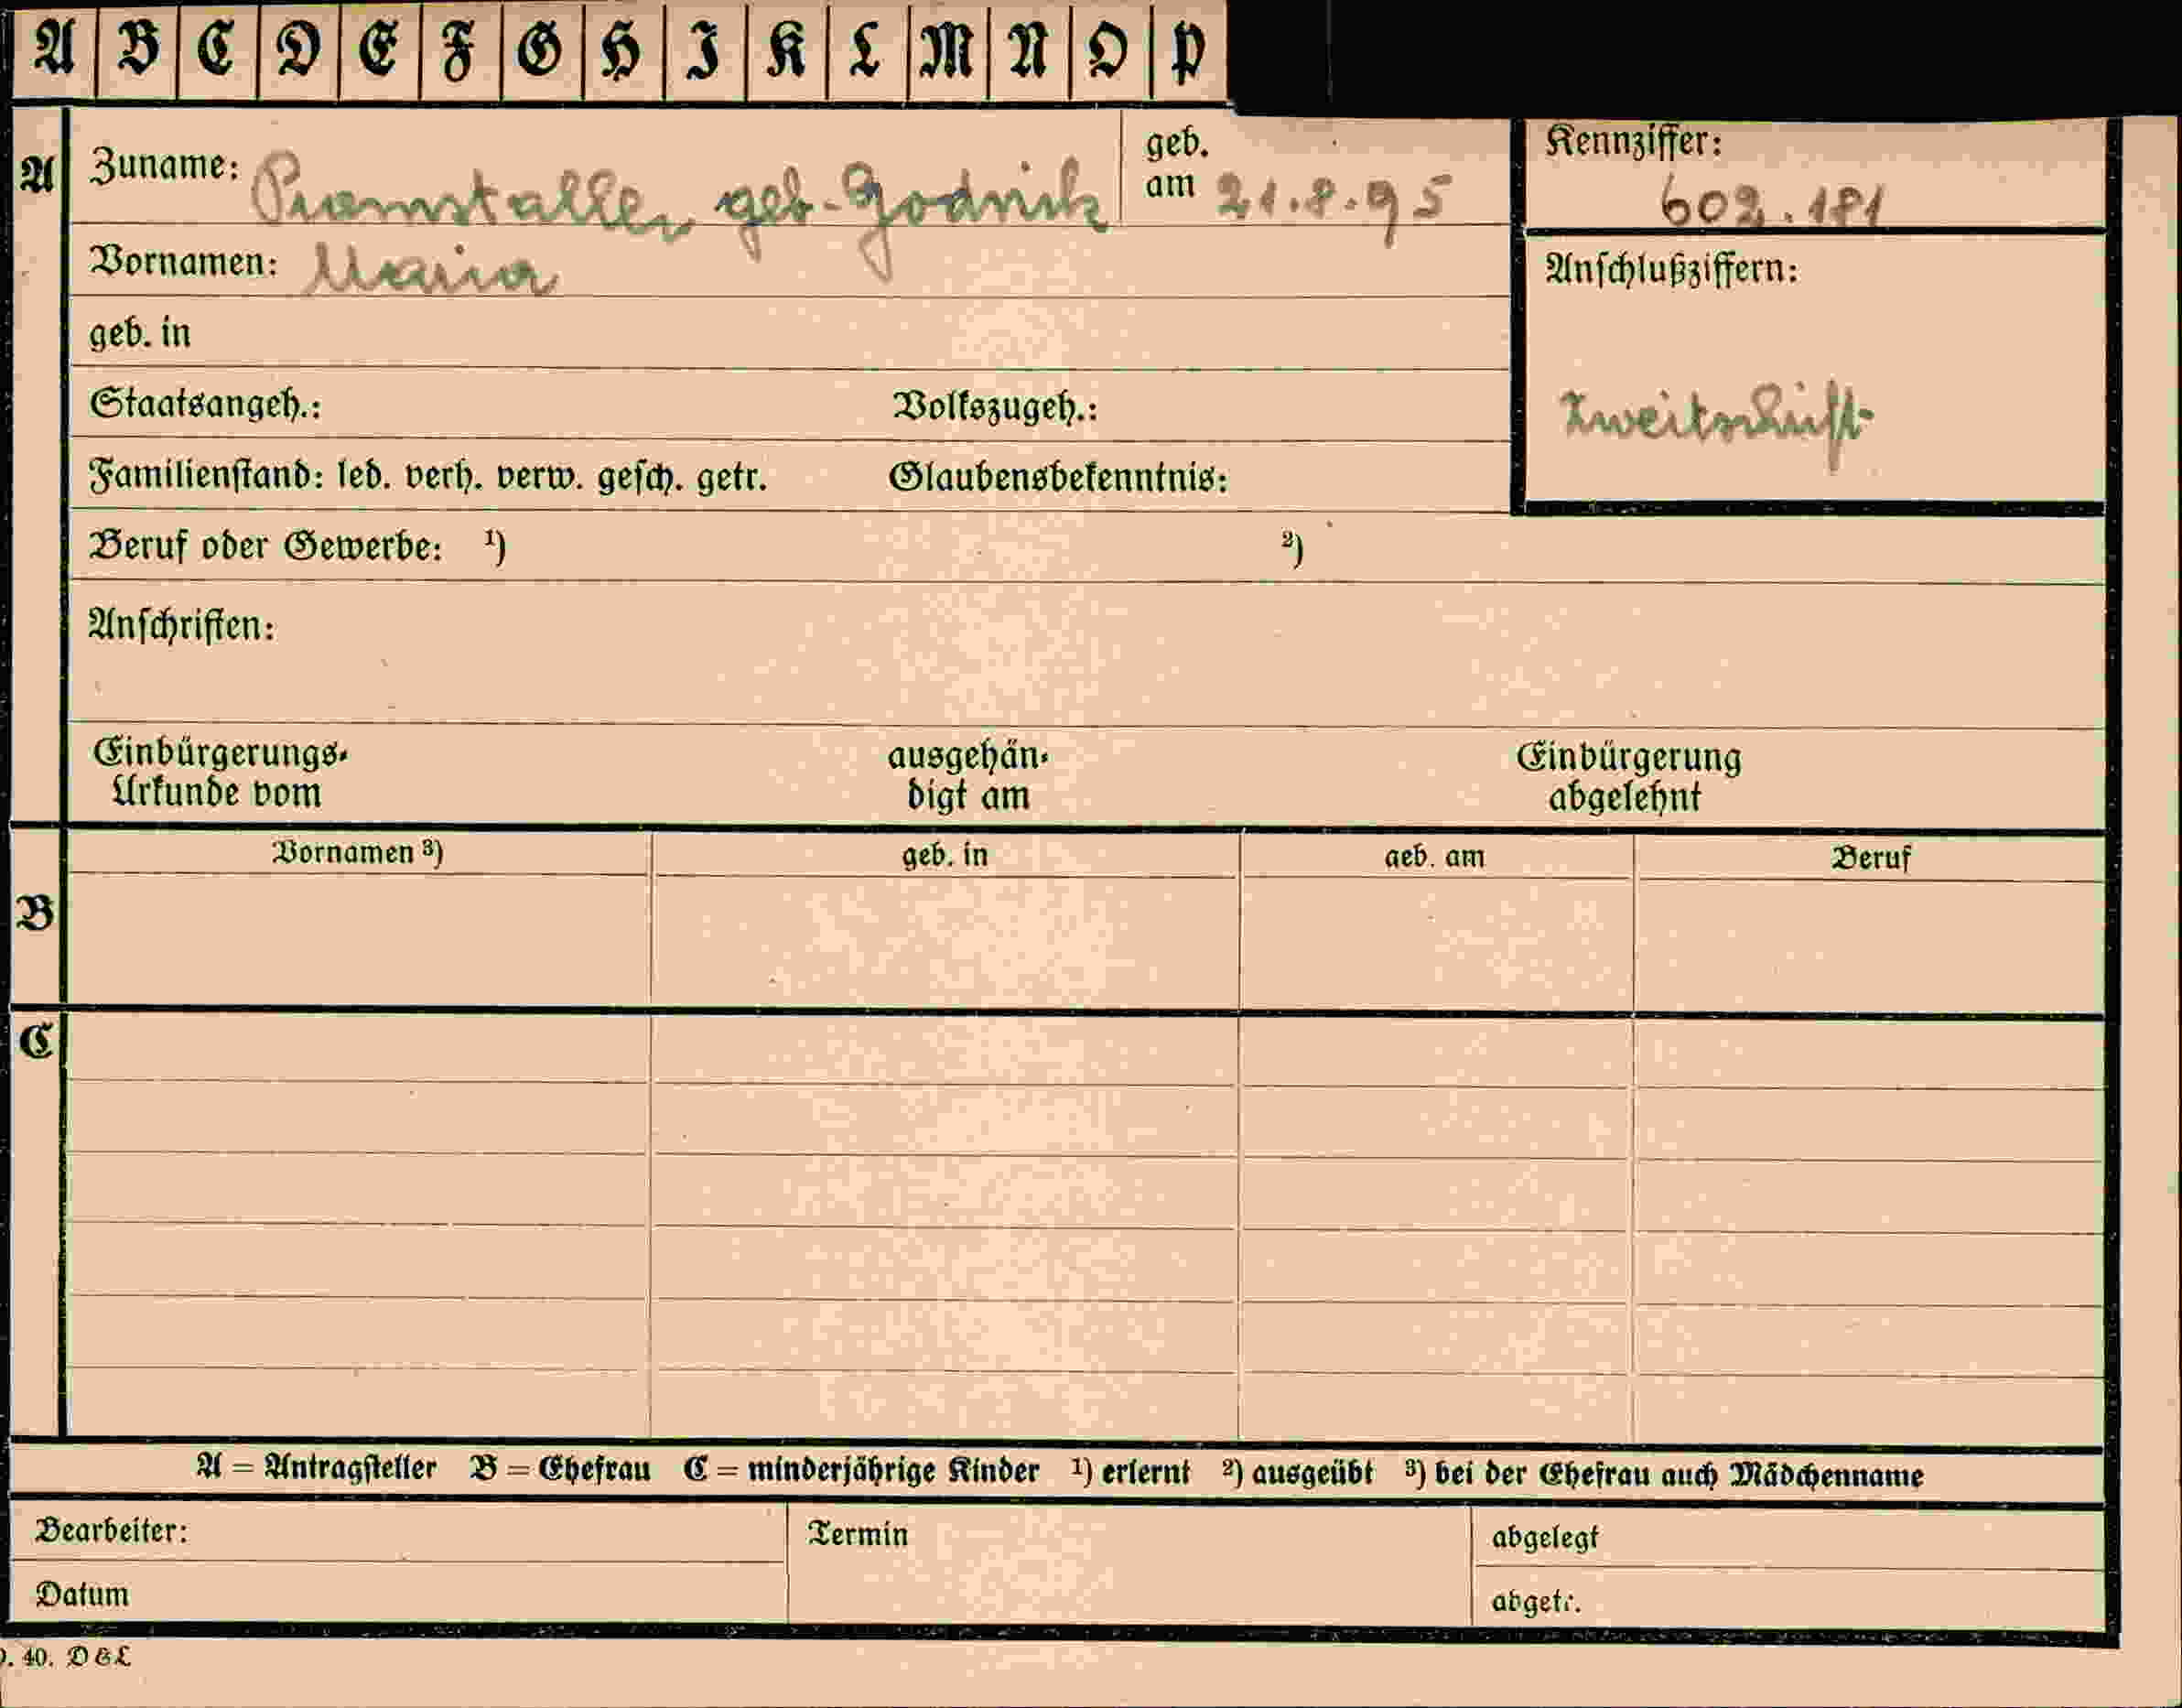 A B C D E F G H I K L M N O P
A Zuname: Pramstaller geb. Godnik geb. am 21.8.95 Kennziffer: 602.181
Vornamen: Maria
Anschlußziffern:
geb. in
Zweitschrift
Staatsangeh.: Volkszugeh.:
Familienstand: led. verh. verw. gesch. getr. Glaubensbekenntnis:
Beruf oder Gewerbe: ¹) ²)
Anschriften:
Einbürgerungs- ausgehän- Einbürgerung
Urkunde vom digt am abgelehnt
Vornamen ³) geb. in geb. am Beruf
B
C
A = Antragsteller B = Ehefrau C = minderjährige Kinder ¹) erlernt ²) ausgeübt ³) bei der Ehefrau auch Mädchenname
Bearbeiter: Termin abgelegt
Datum abgetr.
. 40. D & L